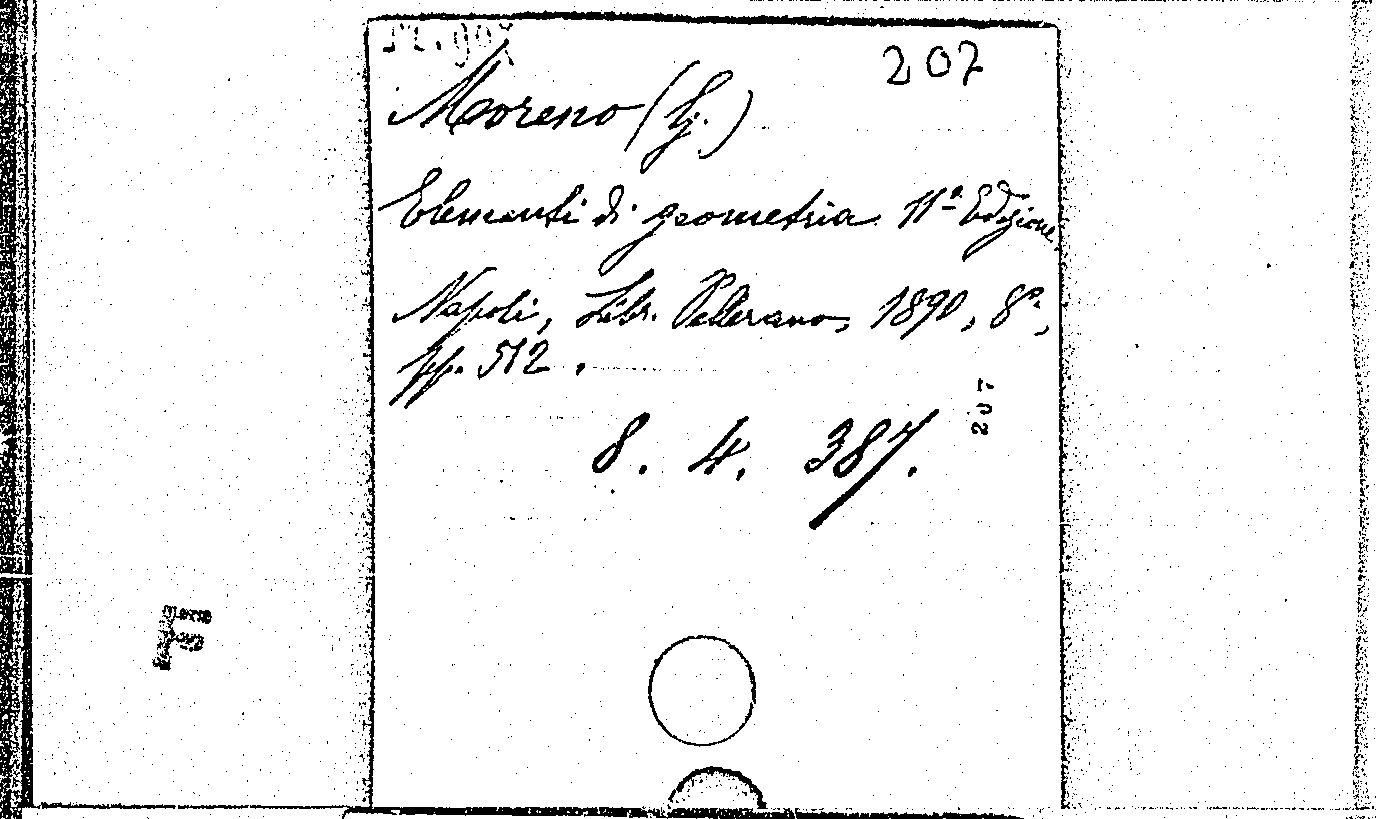 207
Moreno (G.)
Elementi di geometria 11ª Edizione,
Napoli, Libr. Pellerano, 1890, 8º,
pp. 512.
207
8. 4. 387.